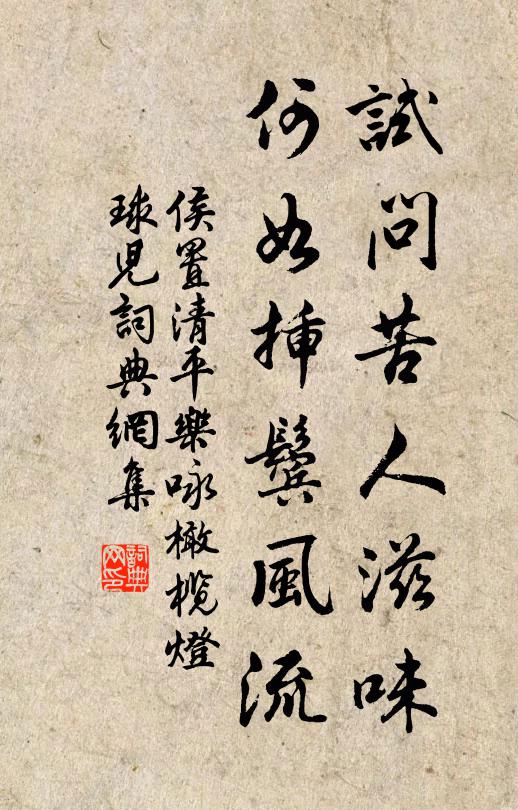 試問苦人滋味
何如揷鬢風流
侯置清平樂咏橄榄燈
球兒詞典網集
詞典
网印